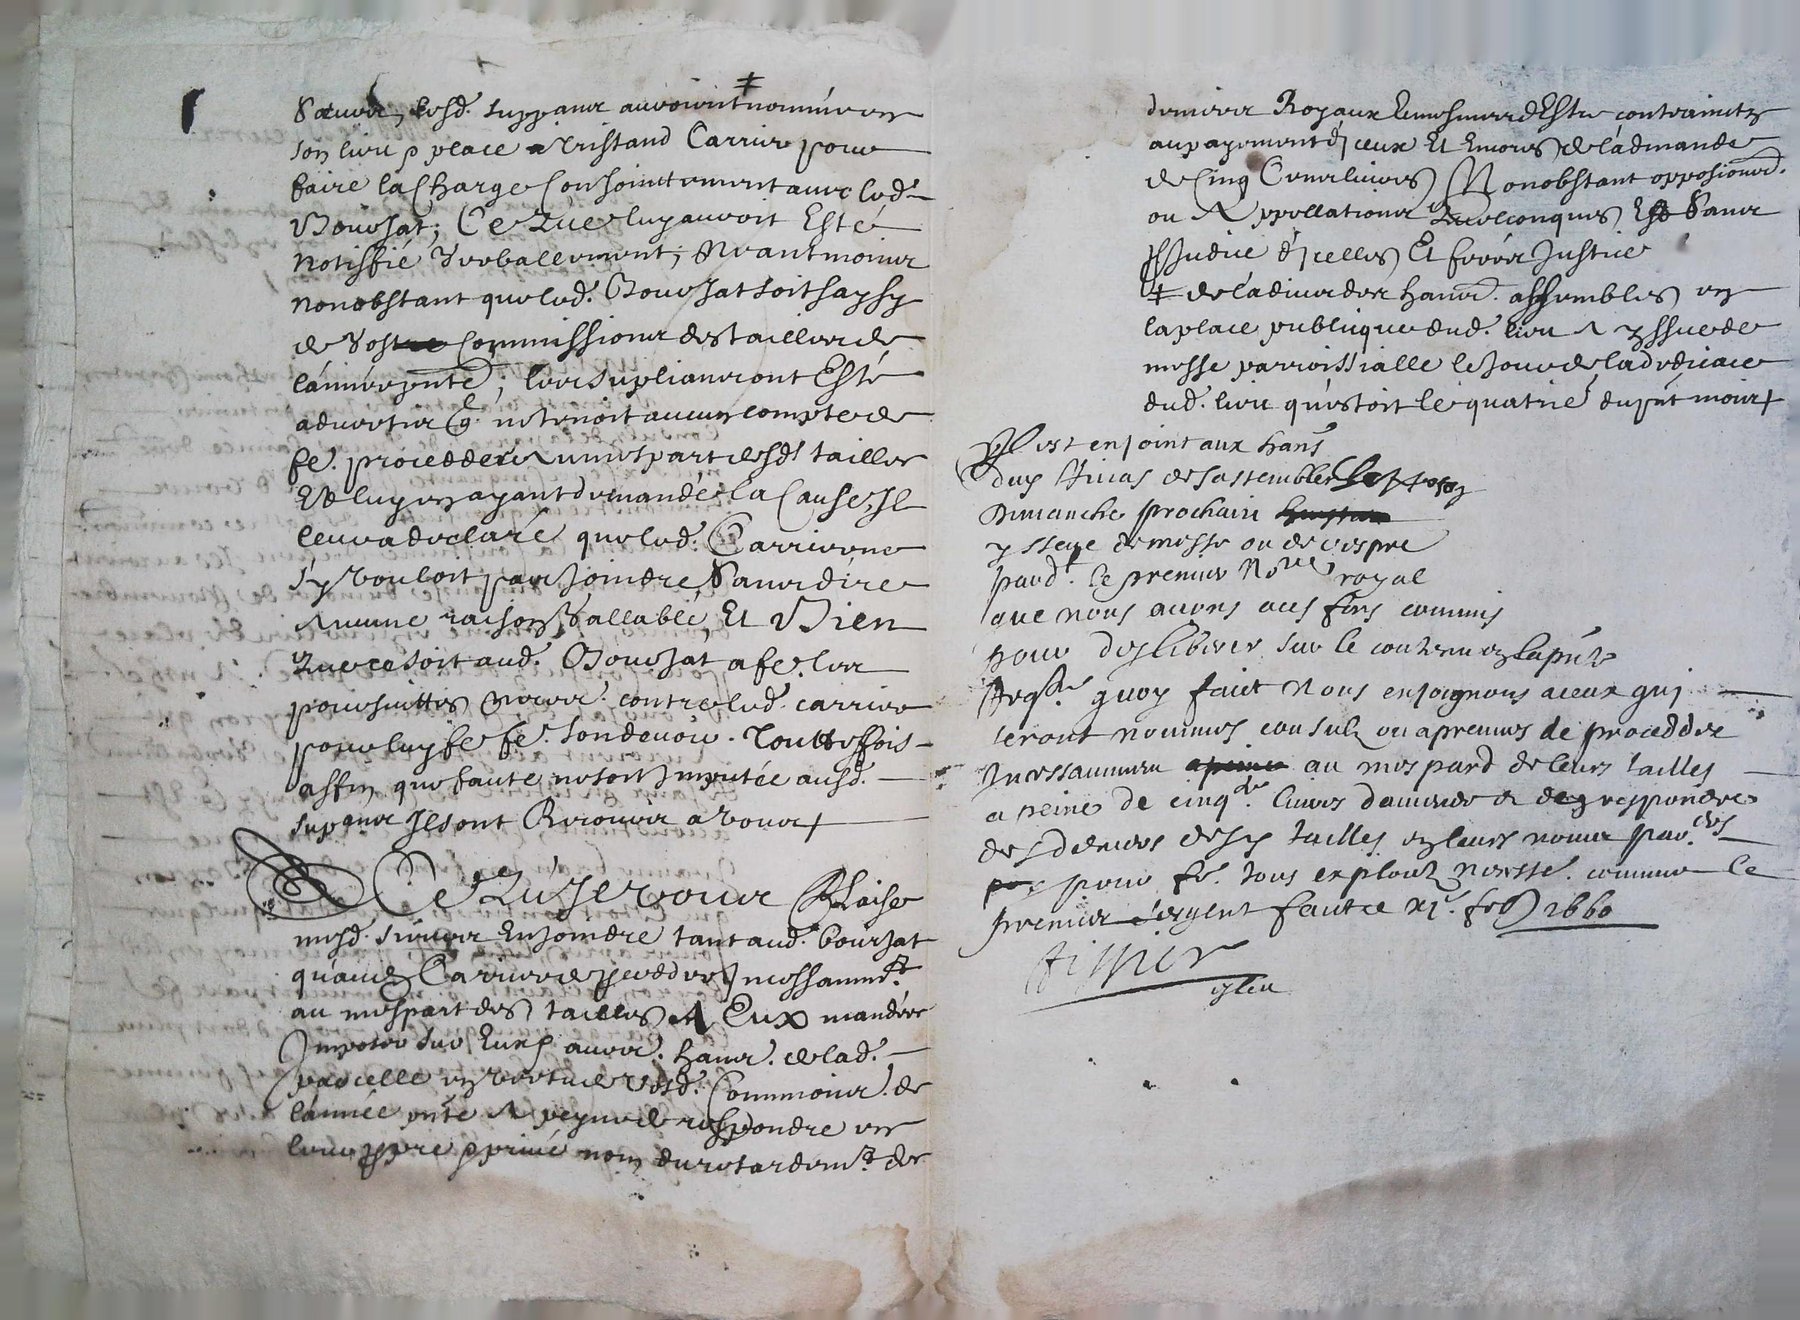 Sauoir, lesd. supp.ans auroient ‡ nommé en
son lieu & place Tristand Carrier pour
faire la Charge Conjoinctement auec led.
Bouchat; Ce Que luy auroit Esté
notiffié Verballement; Neantmoins
nonobstant que led. Bouchat soit saysy
de vos Commissions des tailles de
l'année p.nte; les suplians ont Esté
aduertis q. ne tenoit aucun compte de
fe. procedder au mespart desd. tailles
Et luy en ayant demandé la Cause, Il
leur a declaré que led. Carrier ne
s'y vouloit pas Joindre, Sans dire
Aucune raison Vallable, Et Bien
Que ce soit aud. Bouchat a fe. les
poursuittes necess.res contre led. carrier
pour luy fe. fe. son deuoir. Touttesfois
affin que faute ne soit Imputée ausd.
supans Ils ont Recours a vous +
Ce Qu'Il vous Plaise
mesd. sieurs Enjoindre tant aud. Bouchat
qu'aud. Carrier de proceder Incessamm.t
au mespart des tailles A Eux mandées
Imposer sur Eux & autres hans. de lad.
parcelle en vertu de vosd. Commissions de
l'année p.nte A peyne de respondre en
leur propre & priué nom du retardem.t des
deniers Royaux & mesmes d'Estre contraincts
au payement d'iceux Et Encores de l'amande
de Cinq Cens liures Nonobstant opposions.
ou Appellations Quelconques Et Sans
p.Judice d'icelles Et ferés Justice
‡ de l'aduis des hans. assembles en
la place publicque dud. lieu A yssue de
messe parroissialle le Jour de la dedicace
dud. lieu qu'estoit le quatrie. du p.nt mois +
Il est enjoint aux hans
de sassembler
Dimanche prochain
yssue de messe ou de vespre
pard.t le premier No.re royal
que nous auons a ces fins commis
pour deslibérer sur le contenu en la p.nte
Req.te quoy faict Nous enjoignons a ceux qui
seront nommes consulz ou apremier de procedder
Incessamment au mespard de leurs tailles
a peine de cinq. liures damende & de respondre
des deniers desd. tailles en leurs noms pau.
pour fe. tous exploitz necess.e. commis le
premier sergent faict ce xi. feb 1660